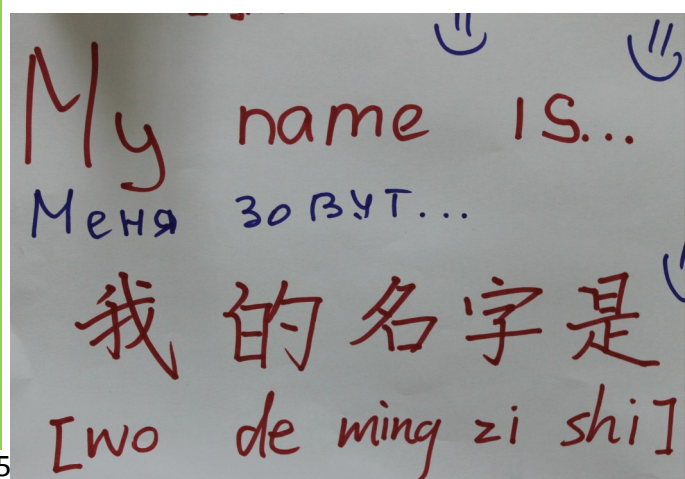 My name is...
Меня зовут...
我的名字是
[wo de ming zi shi]
5